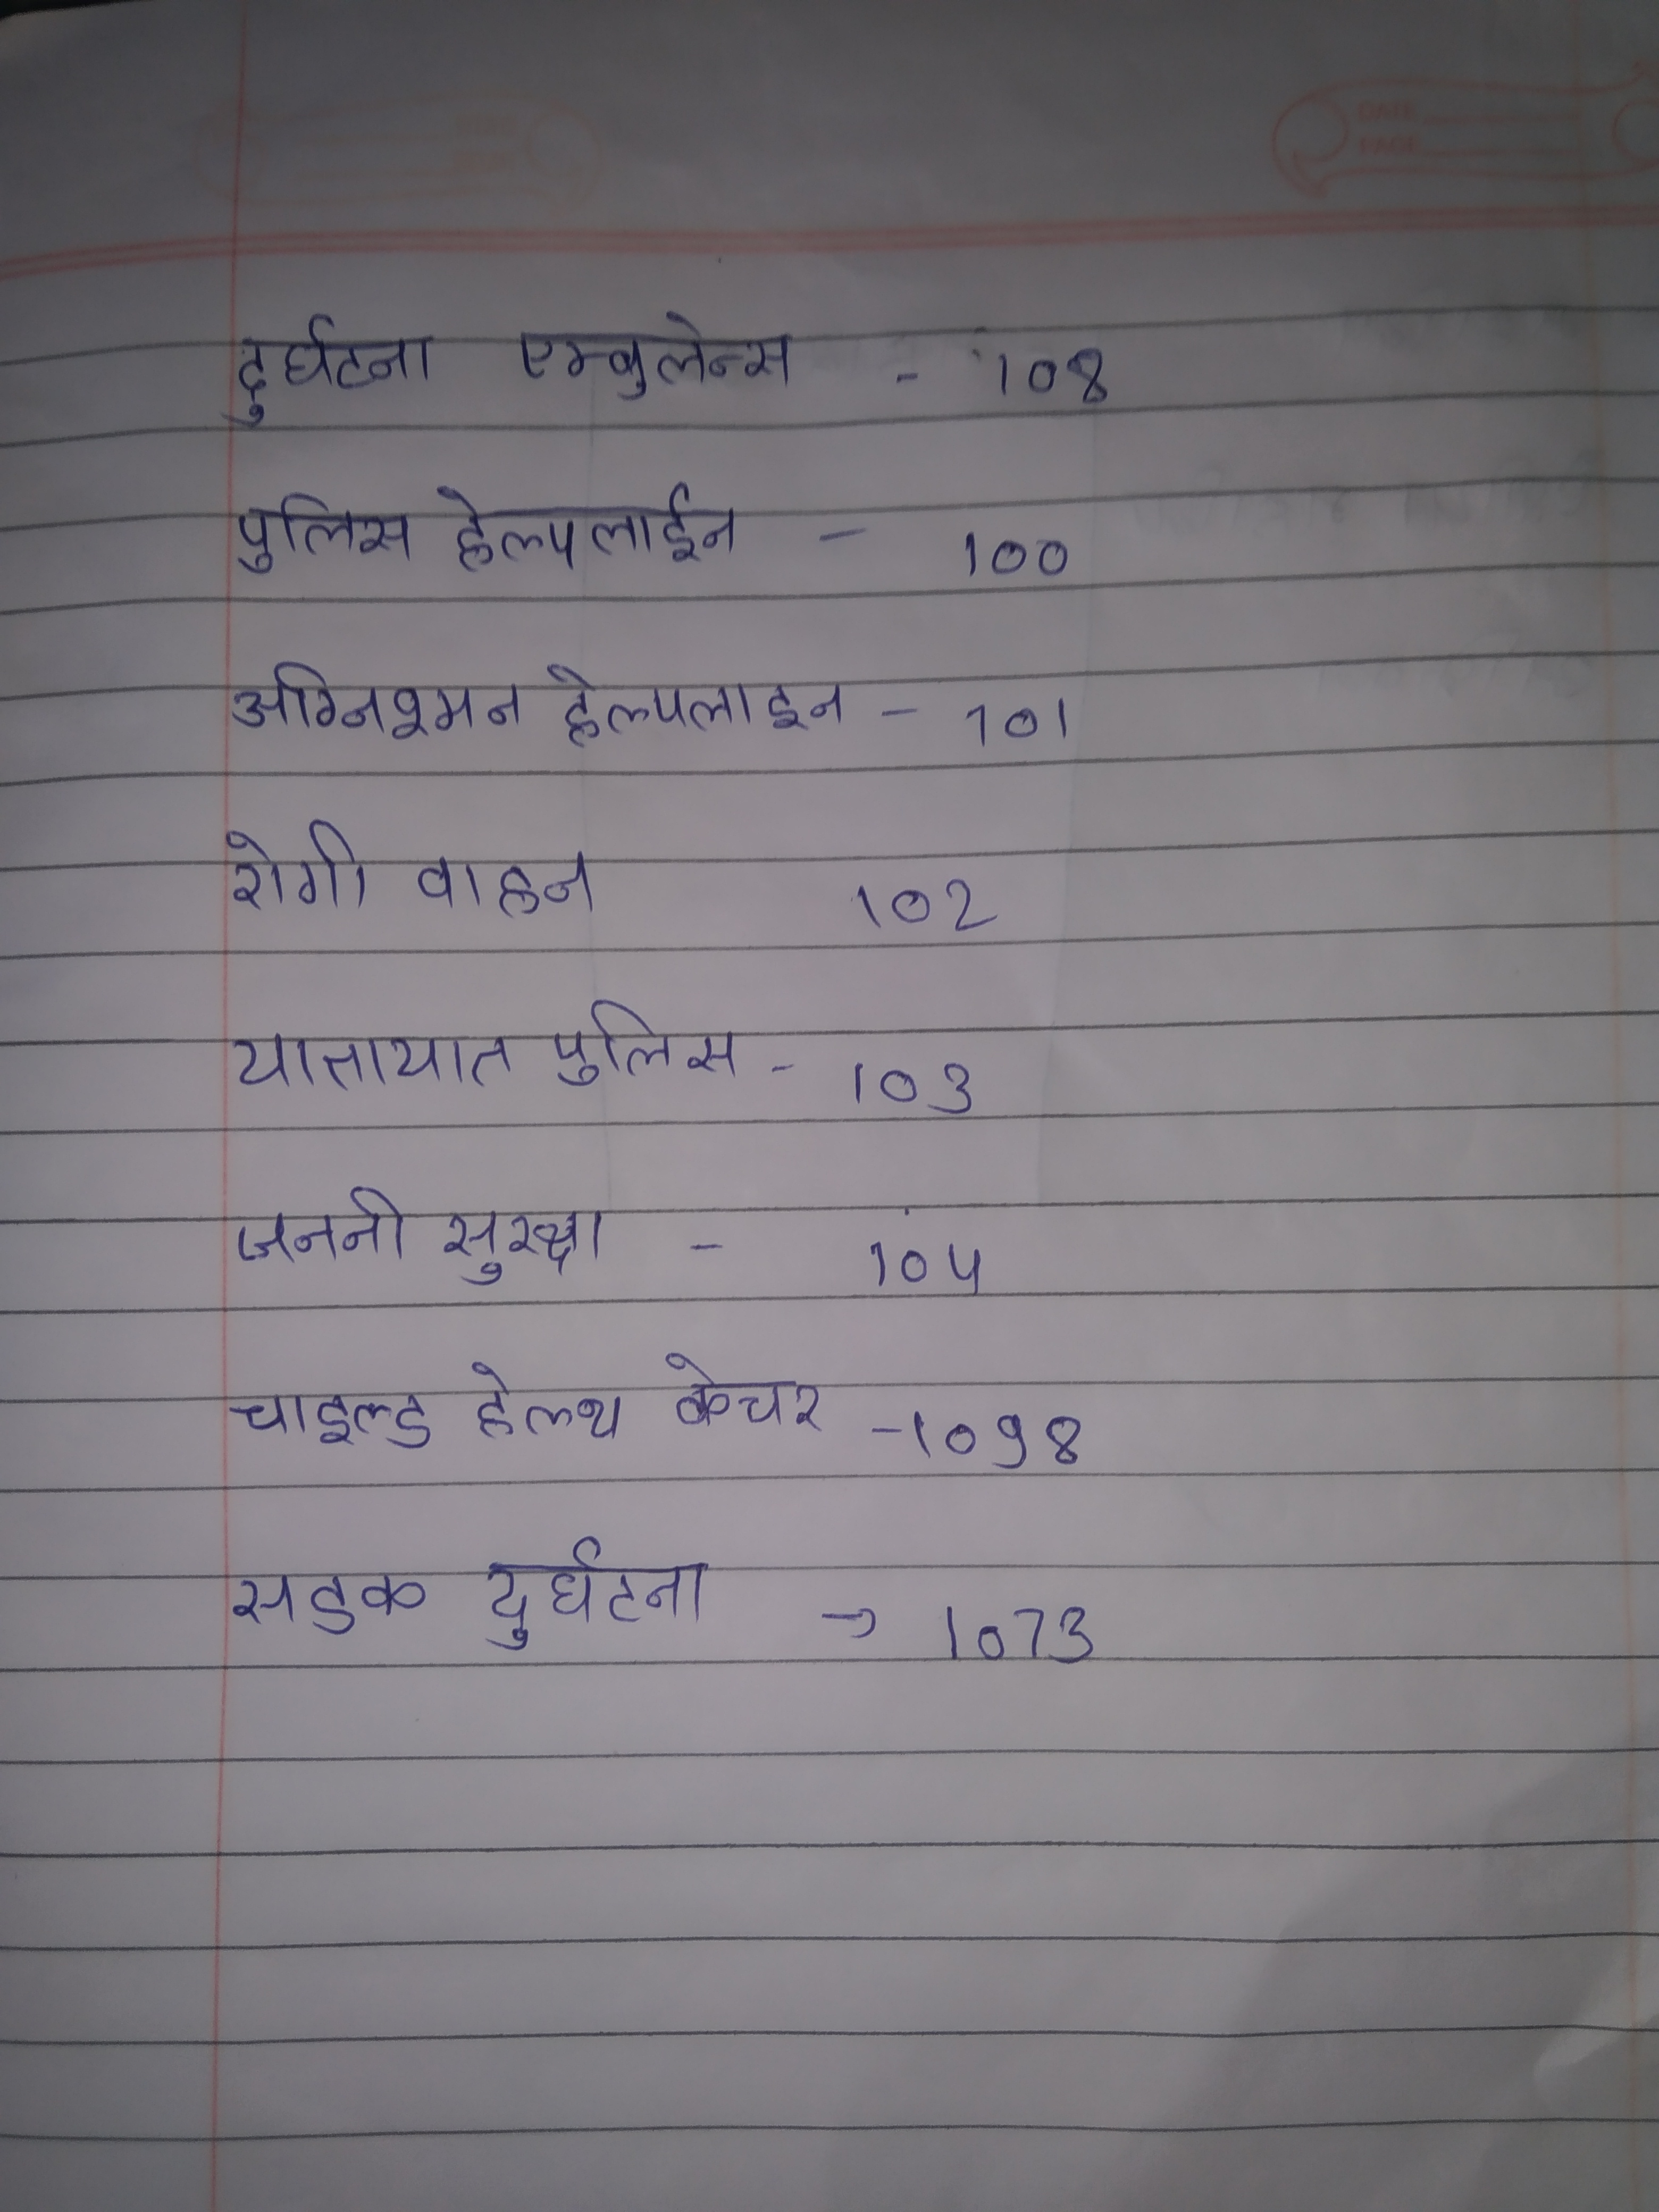 दुर्घटना एम्बुलेन्स - 108
पुलिस हेल्पलाईन - 100
अग्निश्मन हेल्पलाइन - 101
रोगी वाहन 102
यातायात पुलिस - 103
जननी सुरक्षा - 104
चाइल्ड हेल्थ केयर - 1098
सडक दुर्घटना → 1073